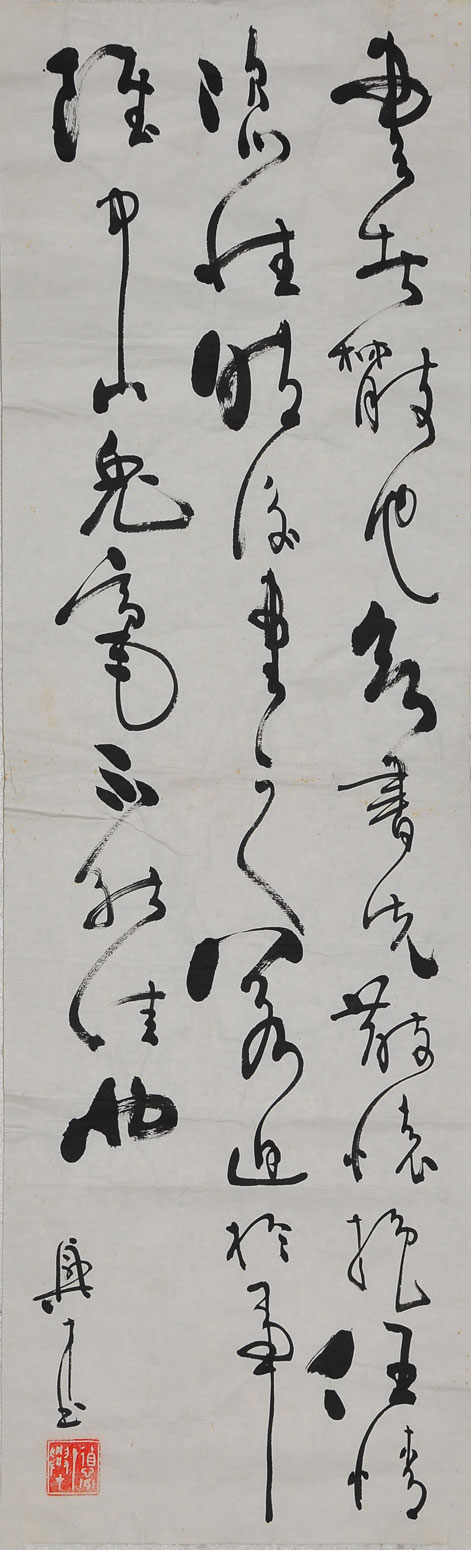 書者散也欲書先散懷抱任情
恣性然後書之若迫於事
雖中山兔毫不能佳也